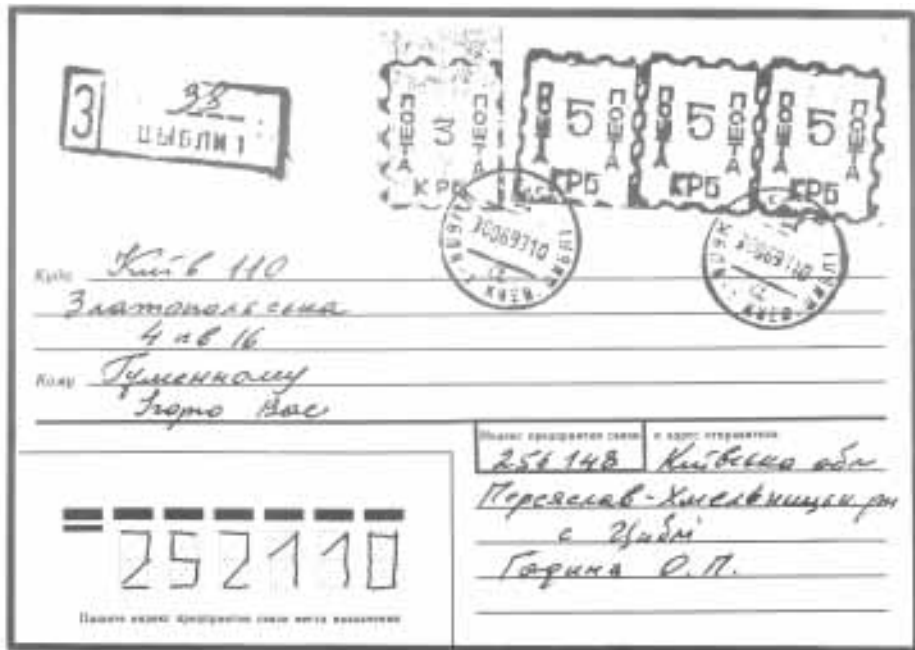 З 33
ЦЫБЛИ 1
ПОШТА 3 ПОШТА
КРБ
ПОШТА 5 ПОШТА
КРБ
ПОШТА 5 ПОШТА
КРБ
ПОШТА 5 ПОШТА
КРБ
30069310
30069310
Куда Київ 110
Златопольська
4 кв 16
Кому Гуменному
Вас
Индекс предприятия связи и адрес отправителя
256148 Київська обл
Переяслав-Хмельницьк рн
с Циблі
Година О.П.
252110
Пишите индекс предприятия связи места назначения